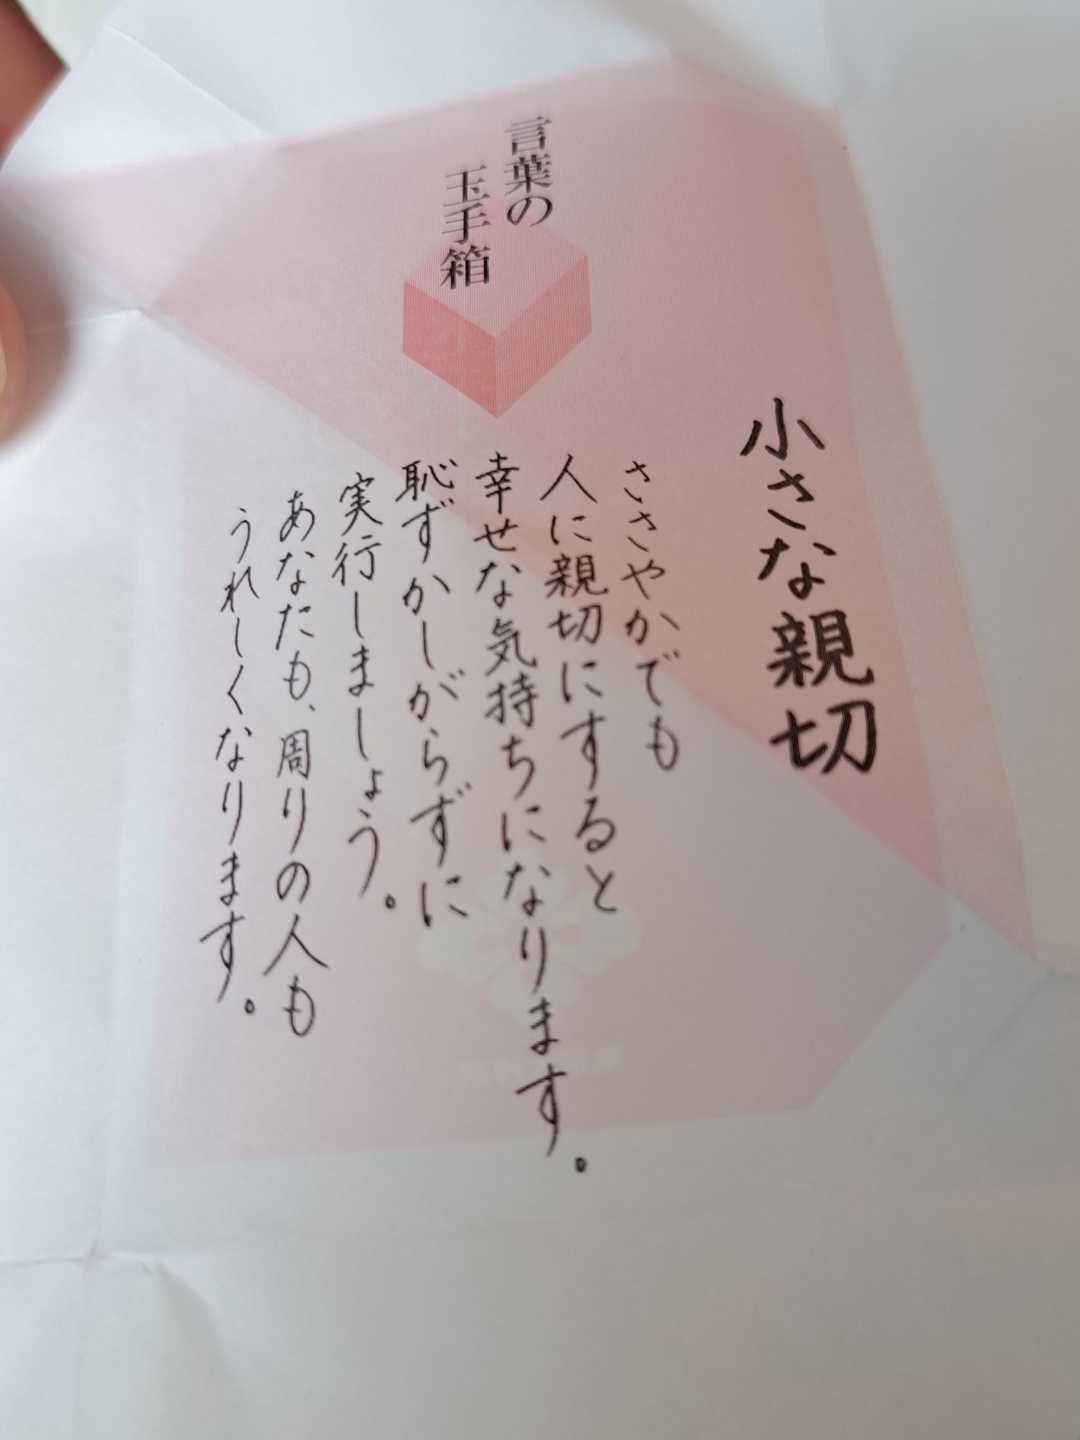 言葉の
玉手箱
小さな親切
ささやかでも
人に親切にすると
幸せな気持ちになります。
恥ずかしがらずに
実行しましょう。
あなたも、周りの人も
うれしくなります。